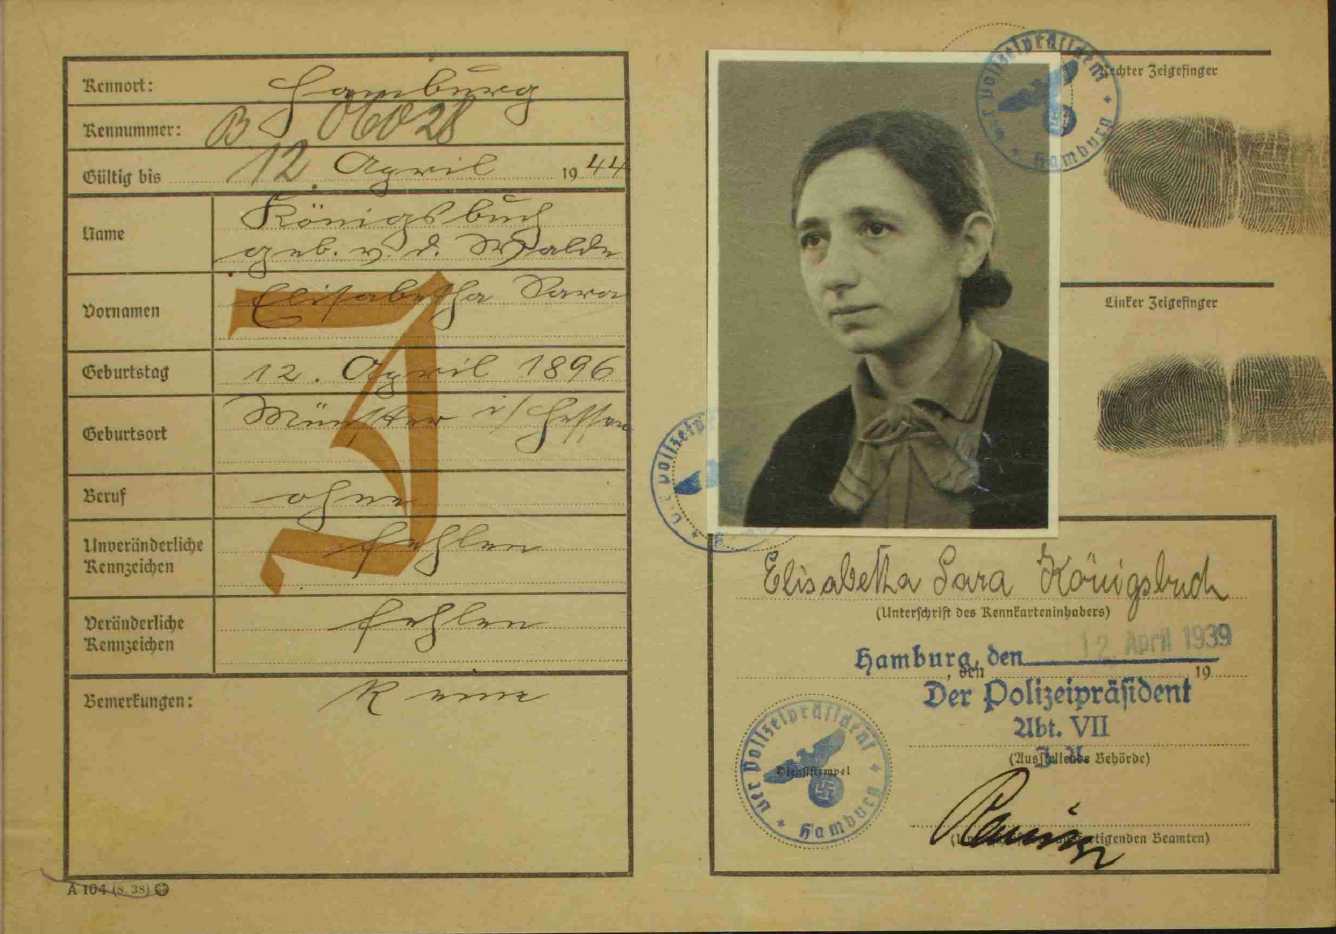 Kennort: Hamburg
Kennummer: B 06028
Gültig bis 12. April 1944
Name Königsbuch
geb. v. d. Walde
Vornamen Elisabetha Sara
J
Geburtstag 12. April 1896
Geburtsort Münster i/Hessen
Beruf ohne
Unveränderliche Kennzeichen fehlen
Veränderliche Kennzeichen fehlen
Bemerkungen: Keine
A 104 (8. 38)
Der Polizeipräsident
Hamburg
Rechter Zeigefinger
Linker Zeigefinger
Der Polizeipräsident
Elisabetha Sara Königsbuch
(Unterschrift des Kennkarteninhabers)
12. April 1939
Hamburg, den
, den 19
Der Polizeipräsident
Abt. VII
(Ausstellende Behörde)
Der Polizeipräsident
Hamburg
Dienststempel
ausfertigenden Beamten)